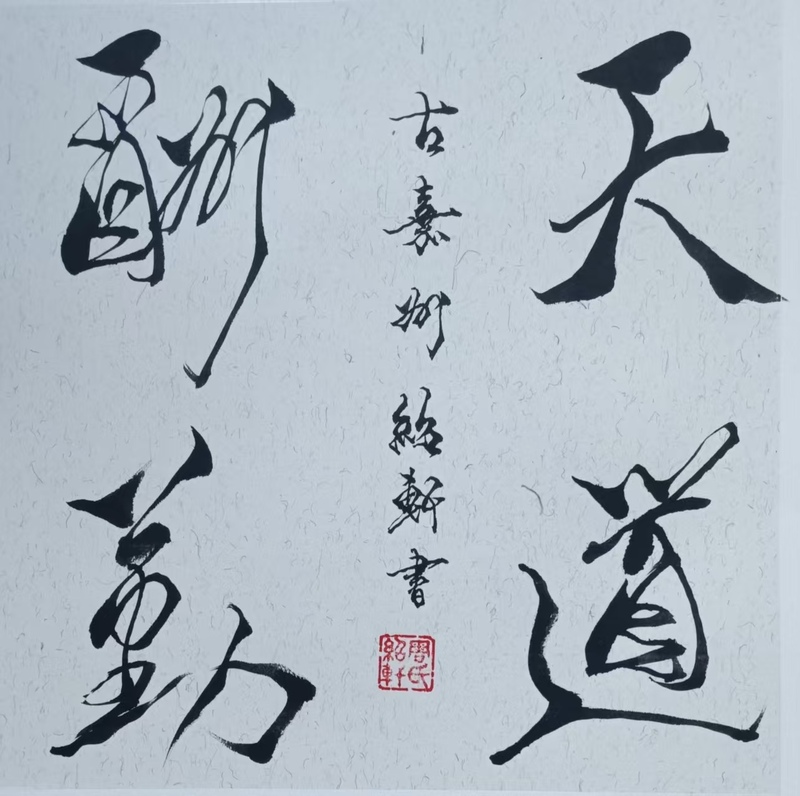 天道
酬勤
古嘉州紹軒書
周氏紹軒